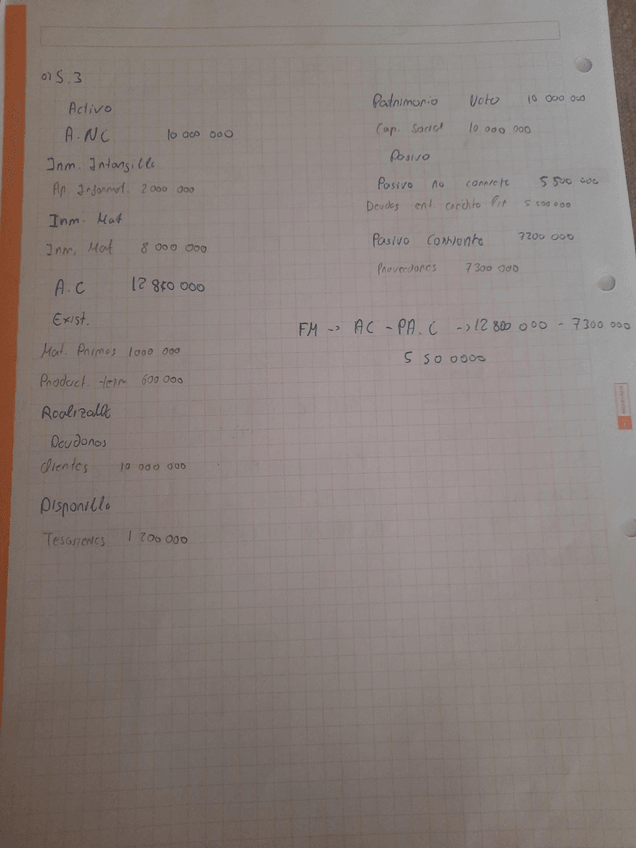 a) S. 3
Activo
A. NC 10 000 000
Inm. Intangible
Ap. Informat. 2000 000
Inm. Mat
Inm. Mat 8 000 000
A.C 12 800 000
Exist.
Mat. Primas 1000 000
Product. term 600 000
Realizable
Deudores
Clientes 10 000 000
Disponible
1 200 000
Patrimonio Neto 10 000 000
Cap. Social 10 000 000
Pasivo
Pasivo no corriente 5 500 000
Deudas ent. crédito 5 500 000
Pasivo Corriente 7300 000
Proveedores 7300 000
FM -> AC - PA.C -> 12 800 000 - 7300 000
5 50 0000